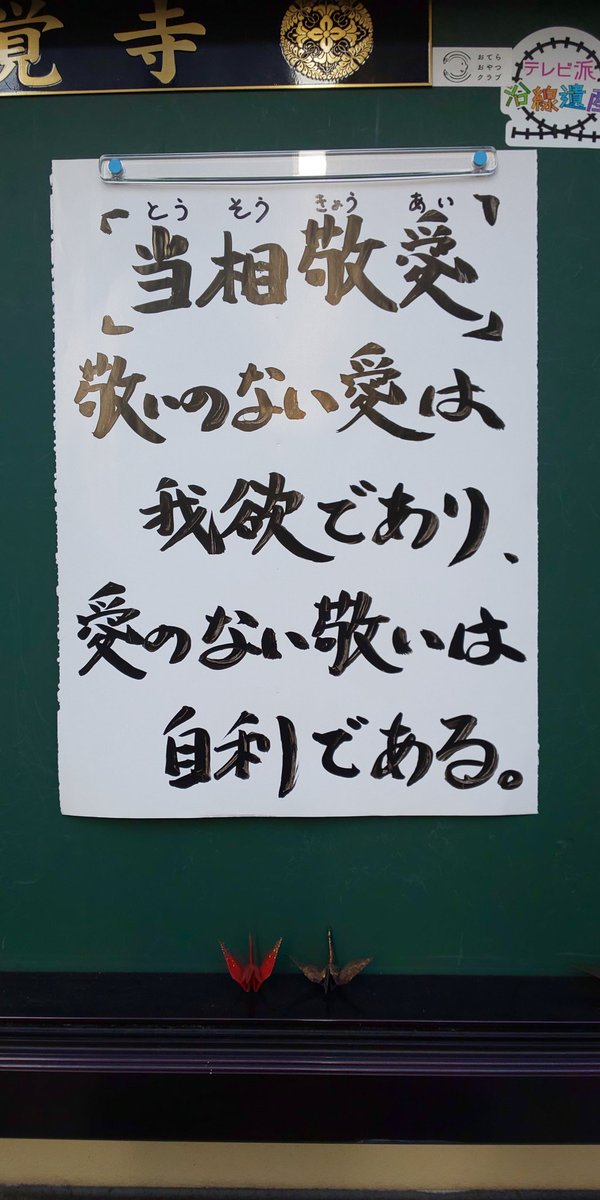 覚寺
おてら
おやつ
クラブ
テレビ派
沿線遺産
とう そう きょう あい
「当相敬愛」
敬いのない愛は
我欲であり、
愛のない敬いは
自利である。